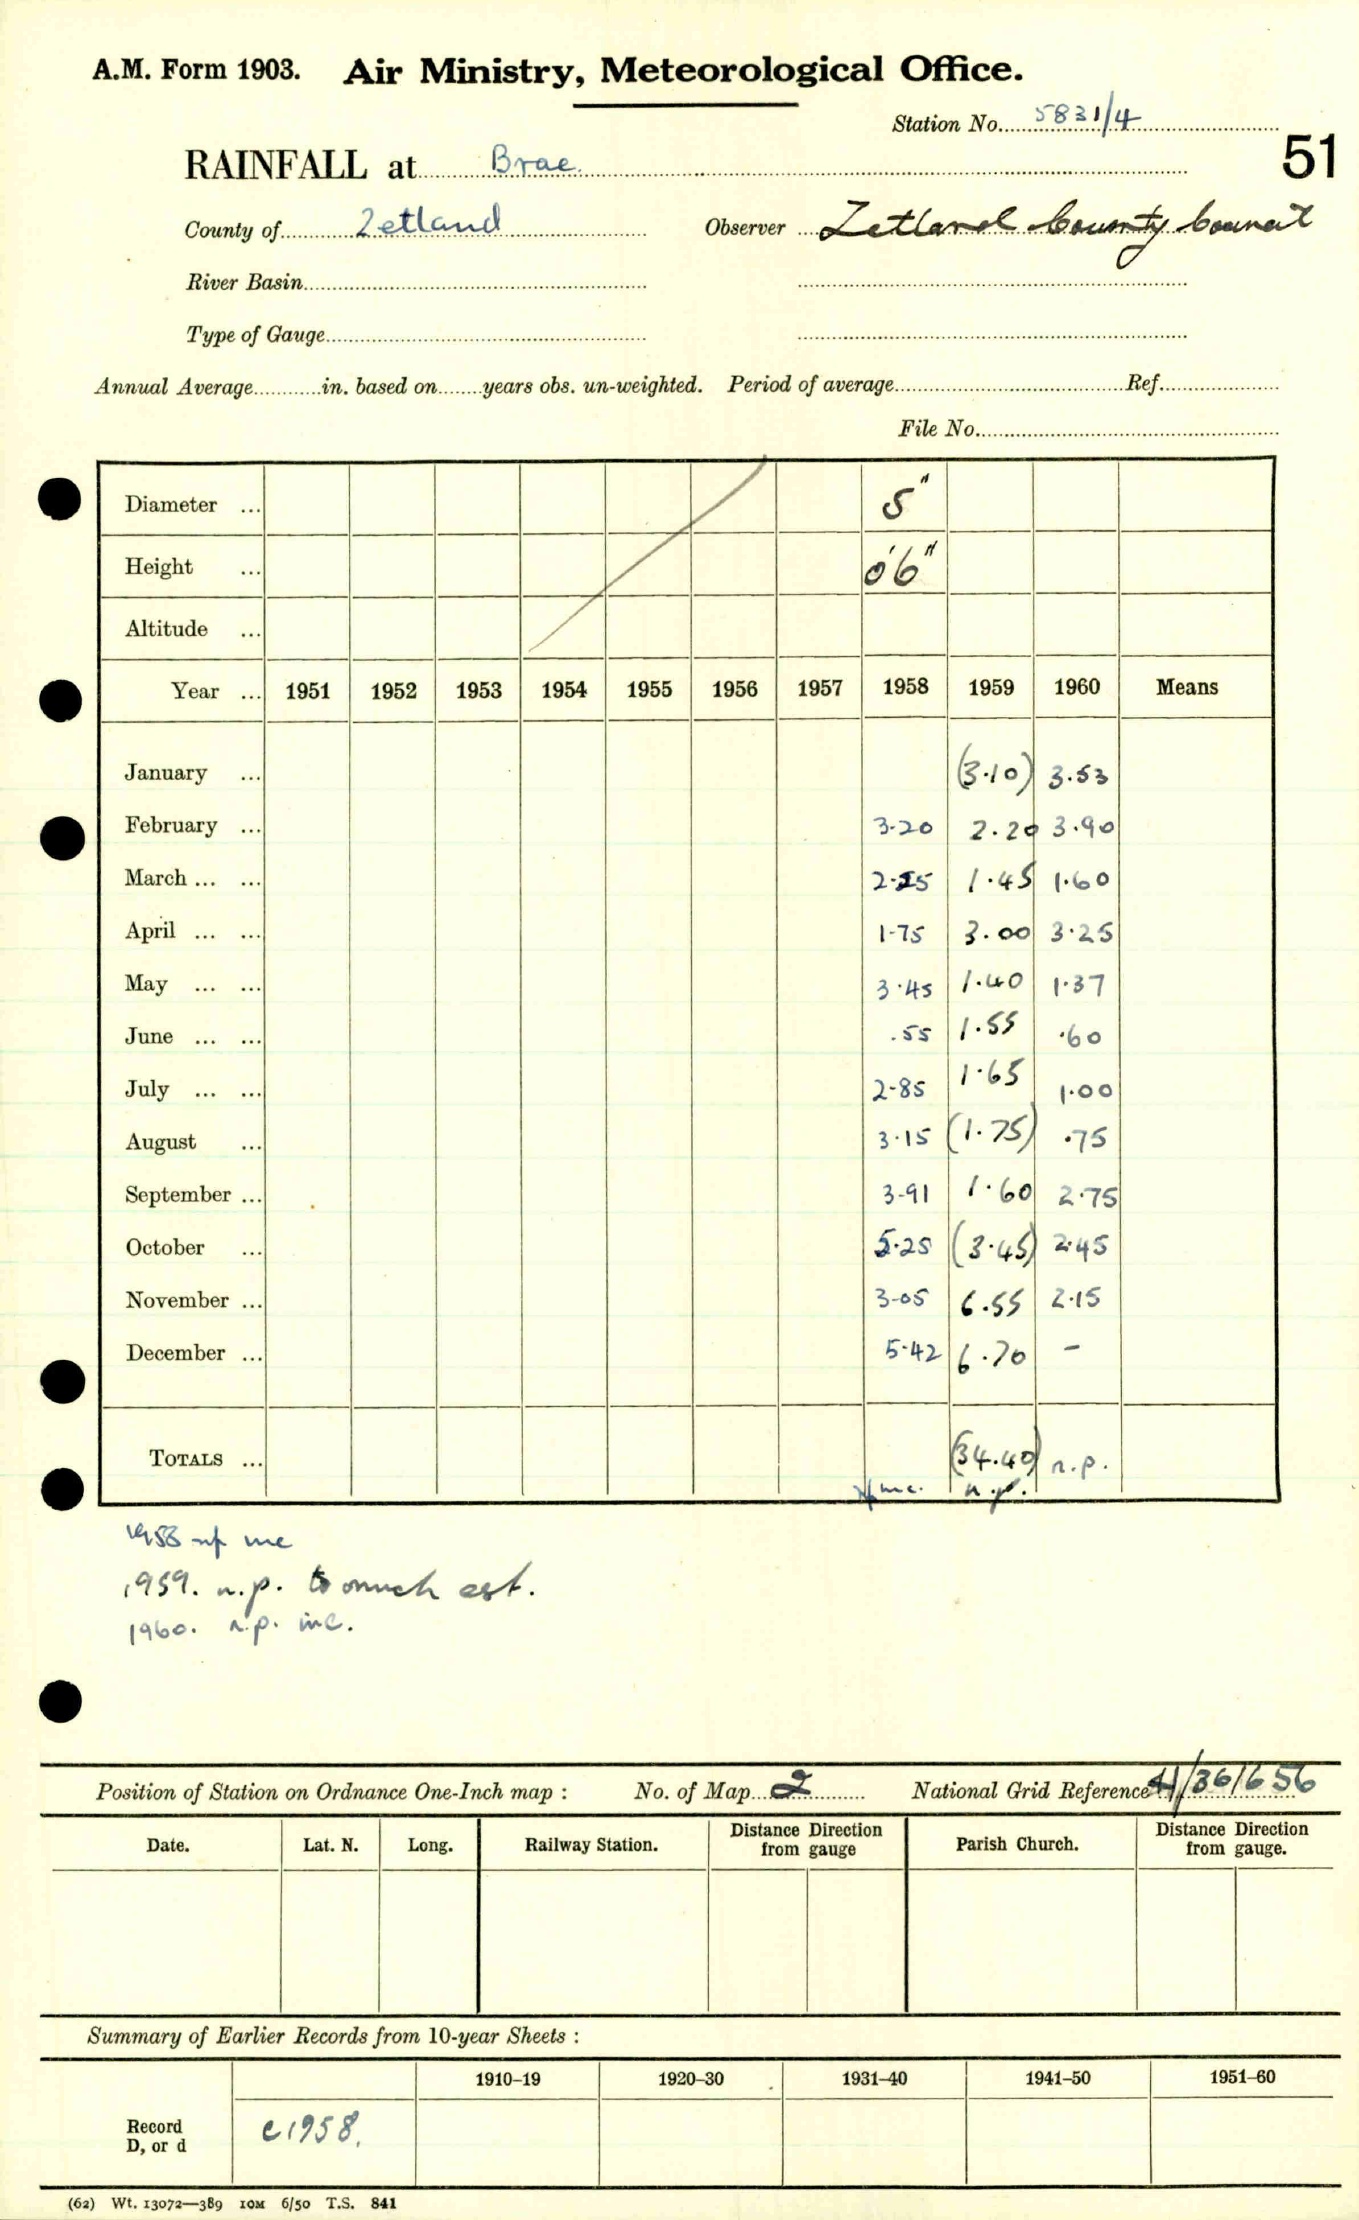 A.M. Form 1903. Air Ministry, Meteorological Office.
Station No. 5831/4
51
RAINFALL at Brae.
County of Zetland Observer Zetland County Council
River Basin
Type of Gauge
Annual Average in. based on years obs. un-weighted. Period of average Ref.
File No.
Diameter ... 5"
Height ... 0'6"
Altitude ...
Year ... 1951 1952 1953 1954 1955 1956 1957 1958 1959 1960 Means
January ... (3.10) 3.53
February ... 3.20 2.20 3.90
March ... ... 2.25 1.45 1.60
April ... ... 1.75 3.00 3.25
May ... ... 3.45 1.40 1.37
June ... ... .55 1.55 .60
July ... ... 2.85 1.65 1.00
August ... 3.15 (1.75) .75
September ... 3.91 1.60 2.75
October ... 5.25 (3.45) 2.45
November ... 3.05 6.55 2.15
December ... 5.42 6.70 -
TOTALS ... (34.40) n.p.
n.p.
1958 np inc
1959. n.p. to much est.
1960. n.p. inc.
Position of Station on Ordnance One-Inch map : No. of Map 2 National Grid Reference 41/361656
Date. Lat. N. Long. Railway Station. Distance from Direction gauge Parish Church. Distance from Direction gauge.
Summary of Earlier Records from 10-year Sheets :
1910–19 1920–30 1931–40 1941–50 1951–60
Record
D, or d
c1958.
(62) Wt. 13072—389 10M 6/50 T.S. 841